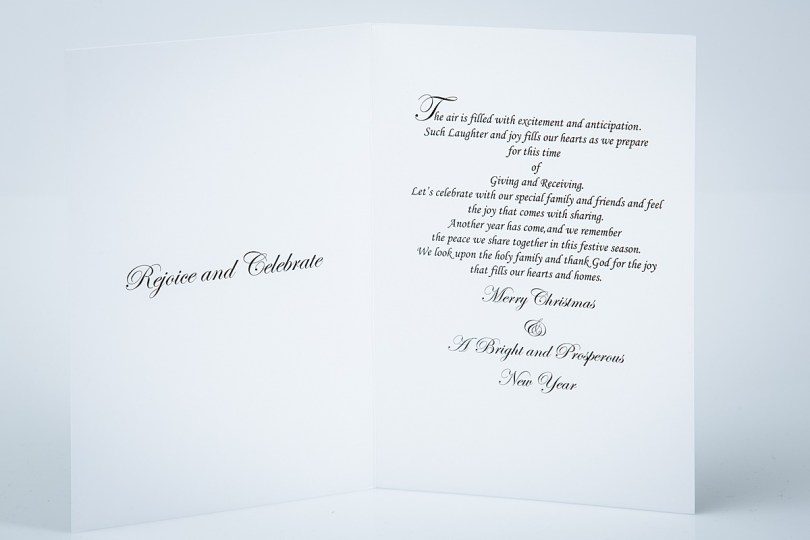 Rejoice and Celebrate
The air is filled with excitement and anticipation.
Such Laughter and joy fills our hearts as we prepare
for this time
of
Giving and Receiving.
Let's celebrate with our special family and friends and feel
the joy that comes with sharing.
Another year has come,and we remember
the peace we share together in this festive season.
We look upon the holy family and thank God for the joy
that fills our hearts and homes.
Merry Christmas
&
A Bright and Prosperous
New Year